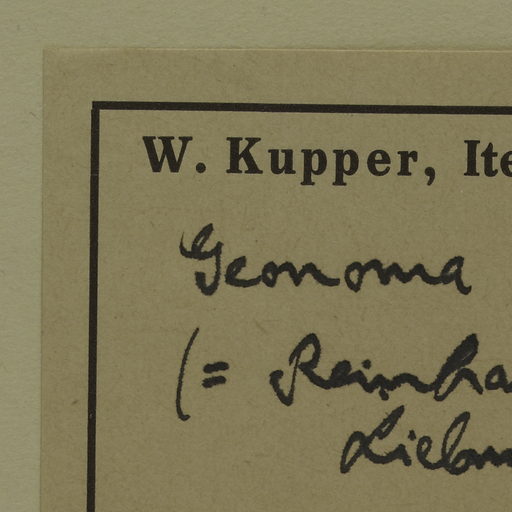 W. Kupper, Ite
Geonoma
(= Reinha
Liebm